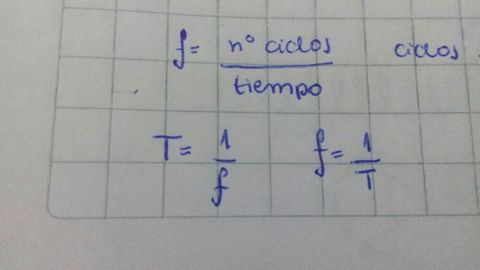 f = nº ciclos / tiempo ciclos
T = 1 / f f = 1 / T